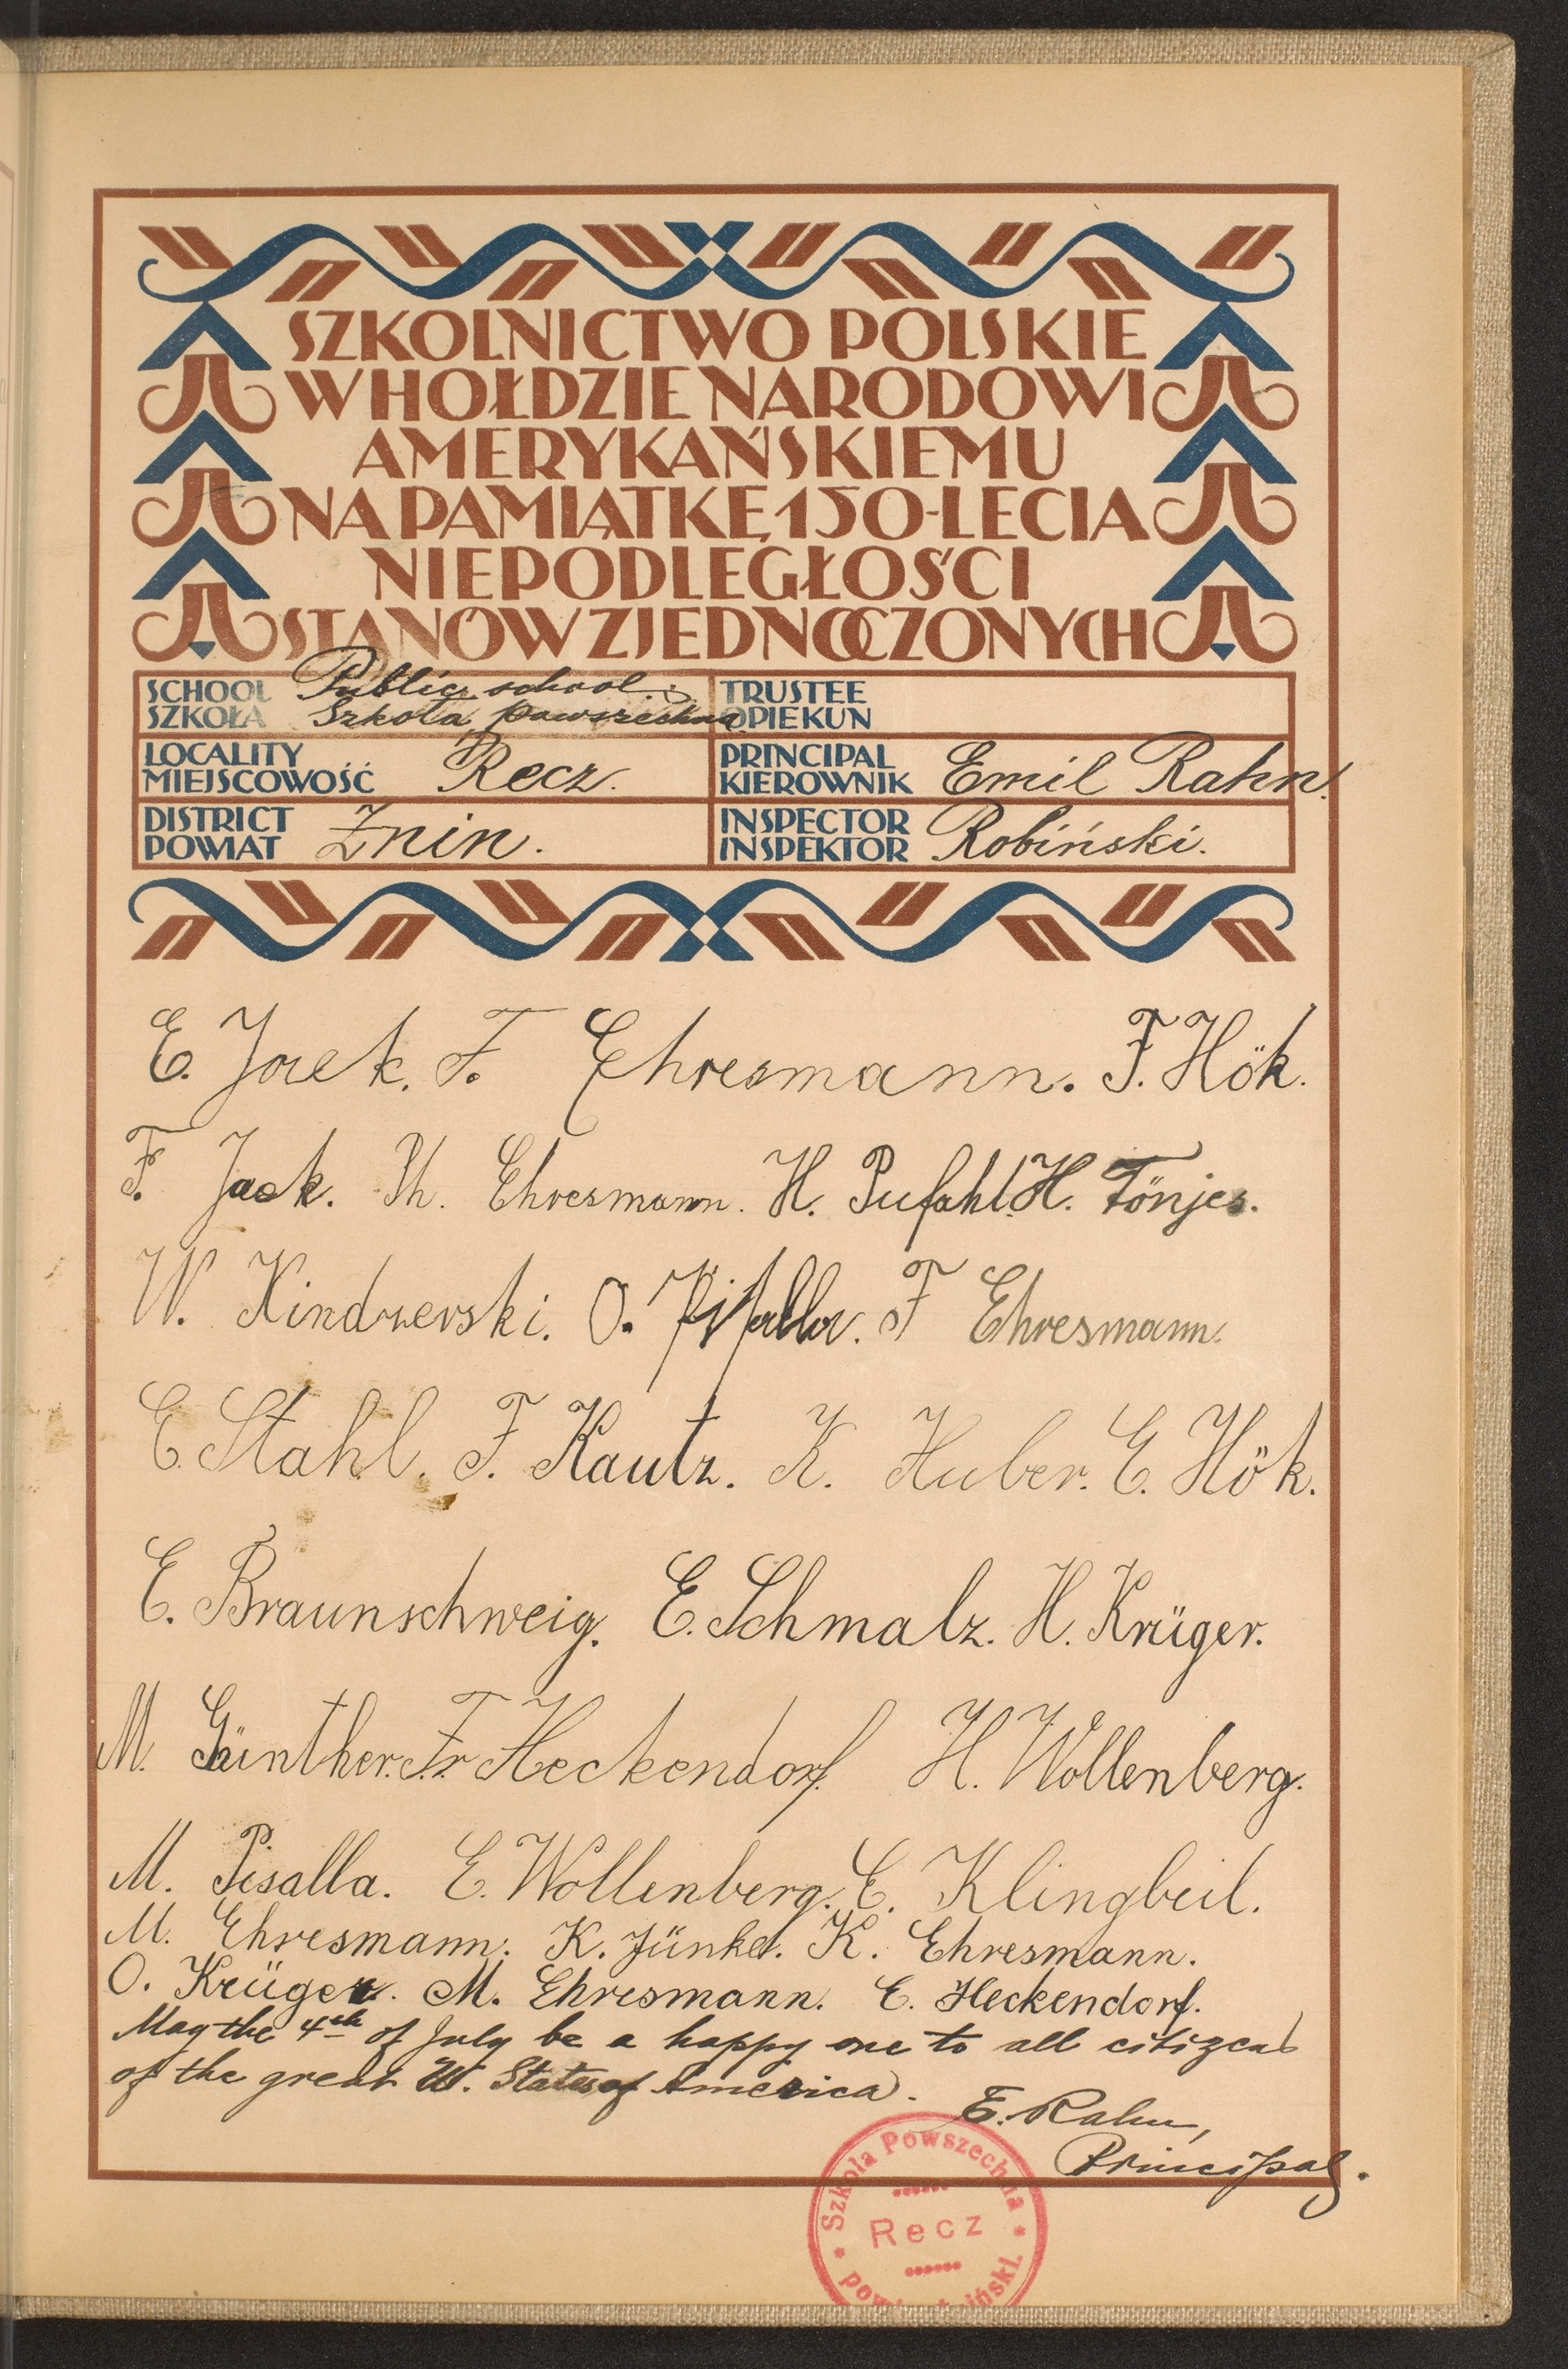 SZKOLNICTWO POLSKIE
W HOŁDZIE NARODOWI
AMERYKAŃSKIEMU
NA PAMIĄTKĘ 150-LECIA
NIEPODLEGŁOŚCI
STANÓW ZJEDNOCZONYCH
SCHOOL Public school.
SZKOŁA Szkoła powszechna
TRUSTEE
OPIEKUN
LOCALITY
MIEJSCOWOŚĆ Recz.
PRINCIPAL
KIEROWNIK Emil Rahn.
DISTRICT
POWIAT Żnin.
INSPECTOR
INSPEKTOR Robiński.
E. Jaek. F. Ehresmann. F. Hök.
F. Jaek. Th. Ehresmann. H. Pufahl. H. Tönjes.
W. Kindzerski. O. F Ehresmann.
E. Stahl. F. Kautz. K. Huber. E. Hök.
E. Braunschweig. E. Schmalz. H. Krüger.
M. Günther. Fr. Heckendorf H. Wollenberg.
M. Pisalla. E. Wollenberg. E. Klingbeil.
M. Ehresmann. K. Jünke. K. Ehresmann.
O. Krüger. M. Ehresmann. E. Heckendorf.
May the 4th of July be a happy one to all citizens
of the great U. States of America.
E. Rahn,
Principal.
Szkoła Powszechna
Recz